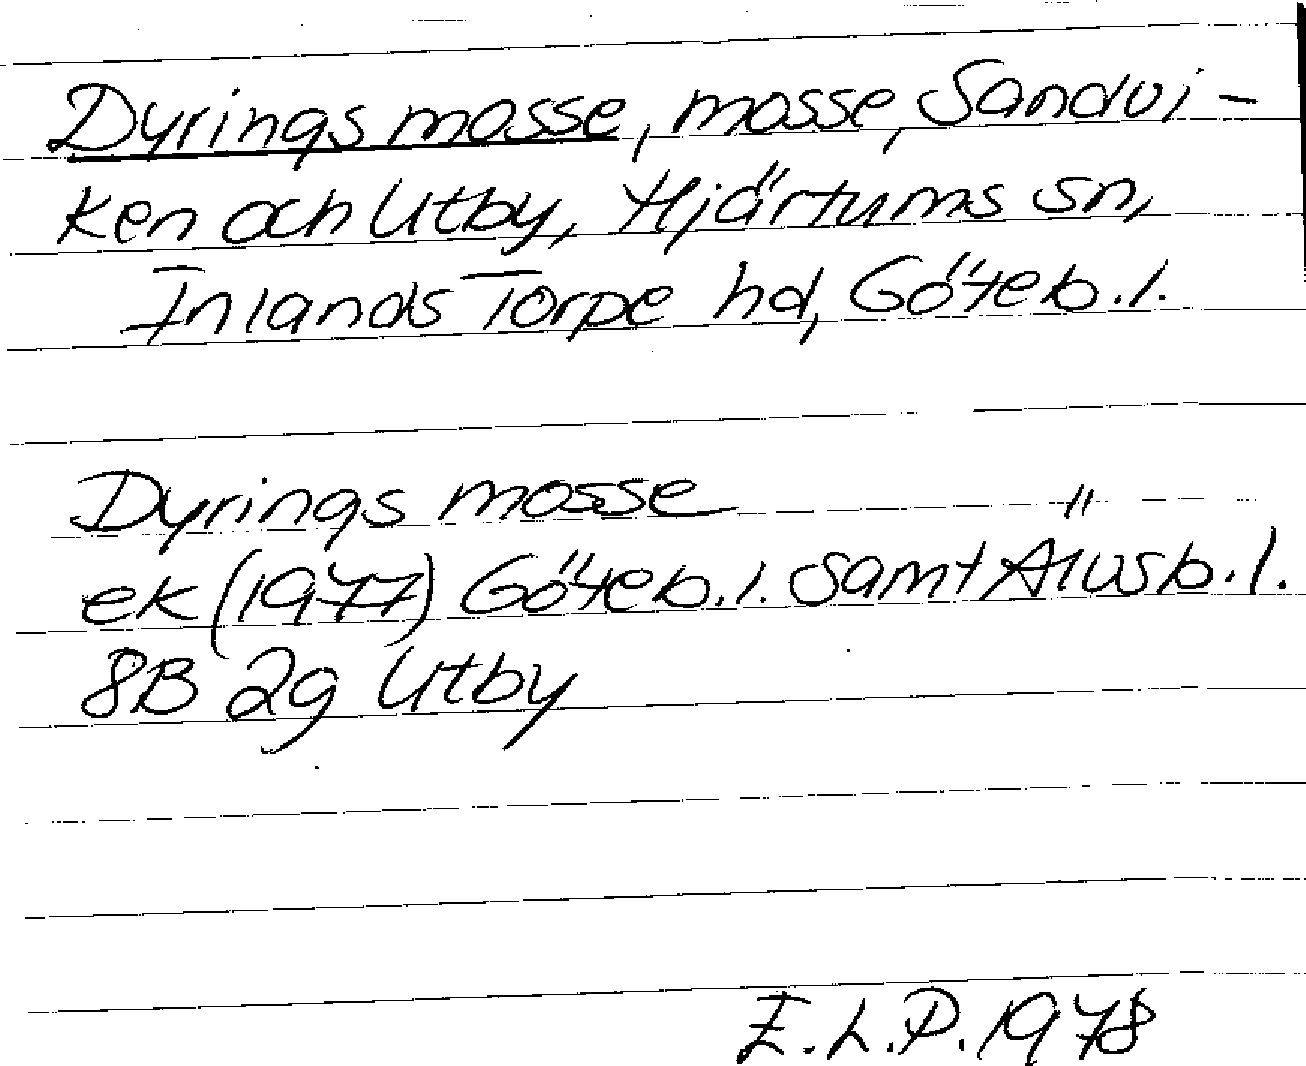 Dyrings mosse, mosse, Sandvi-
ken och Utby, Hjärtums sn,
Inlands Torpe hd, Göteb.l.
Dyrings mosse
ek (1977) Göteb.l. samt Älvsb.l.
8B 2g Utby
E.L.P. 1978